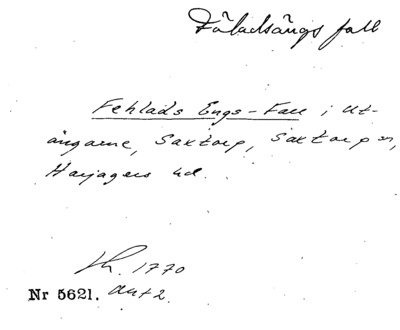 Fäladsängs fall
Fehlads Engs-Fall i Ut-
ängarne, Saxtorp, Saxtorp sn,
Harjagers hd.
Lh. 1770
Nr 5621. akt 2.